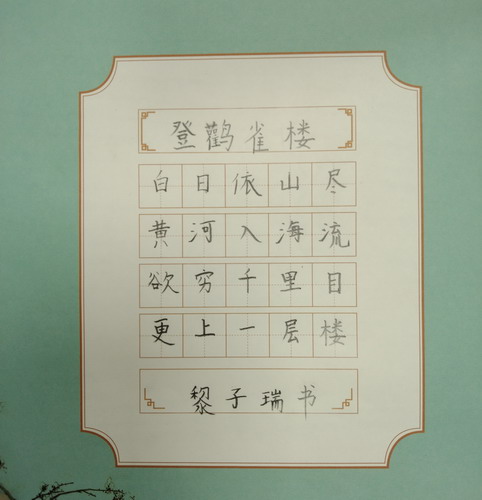 登鹳雀楼
白日依山尽
黄河入海流
欲穷千里目
更上一层楼
黎子瑞书